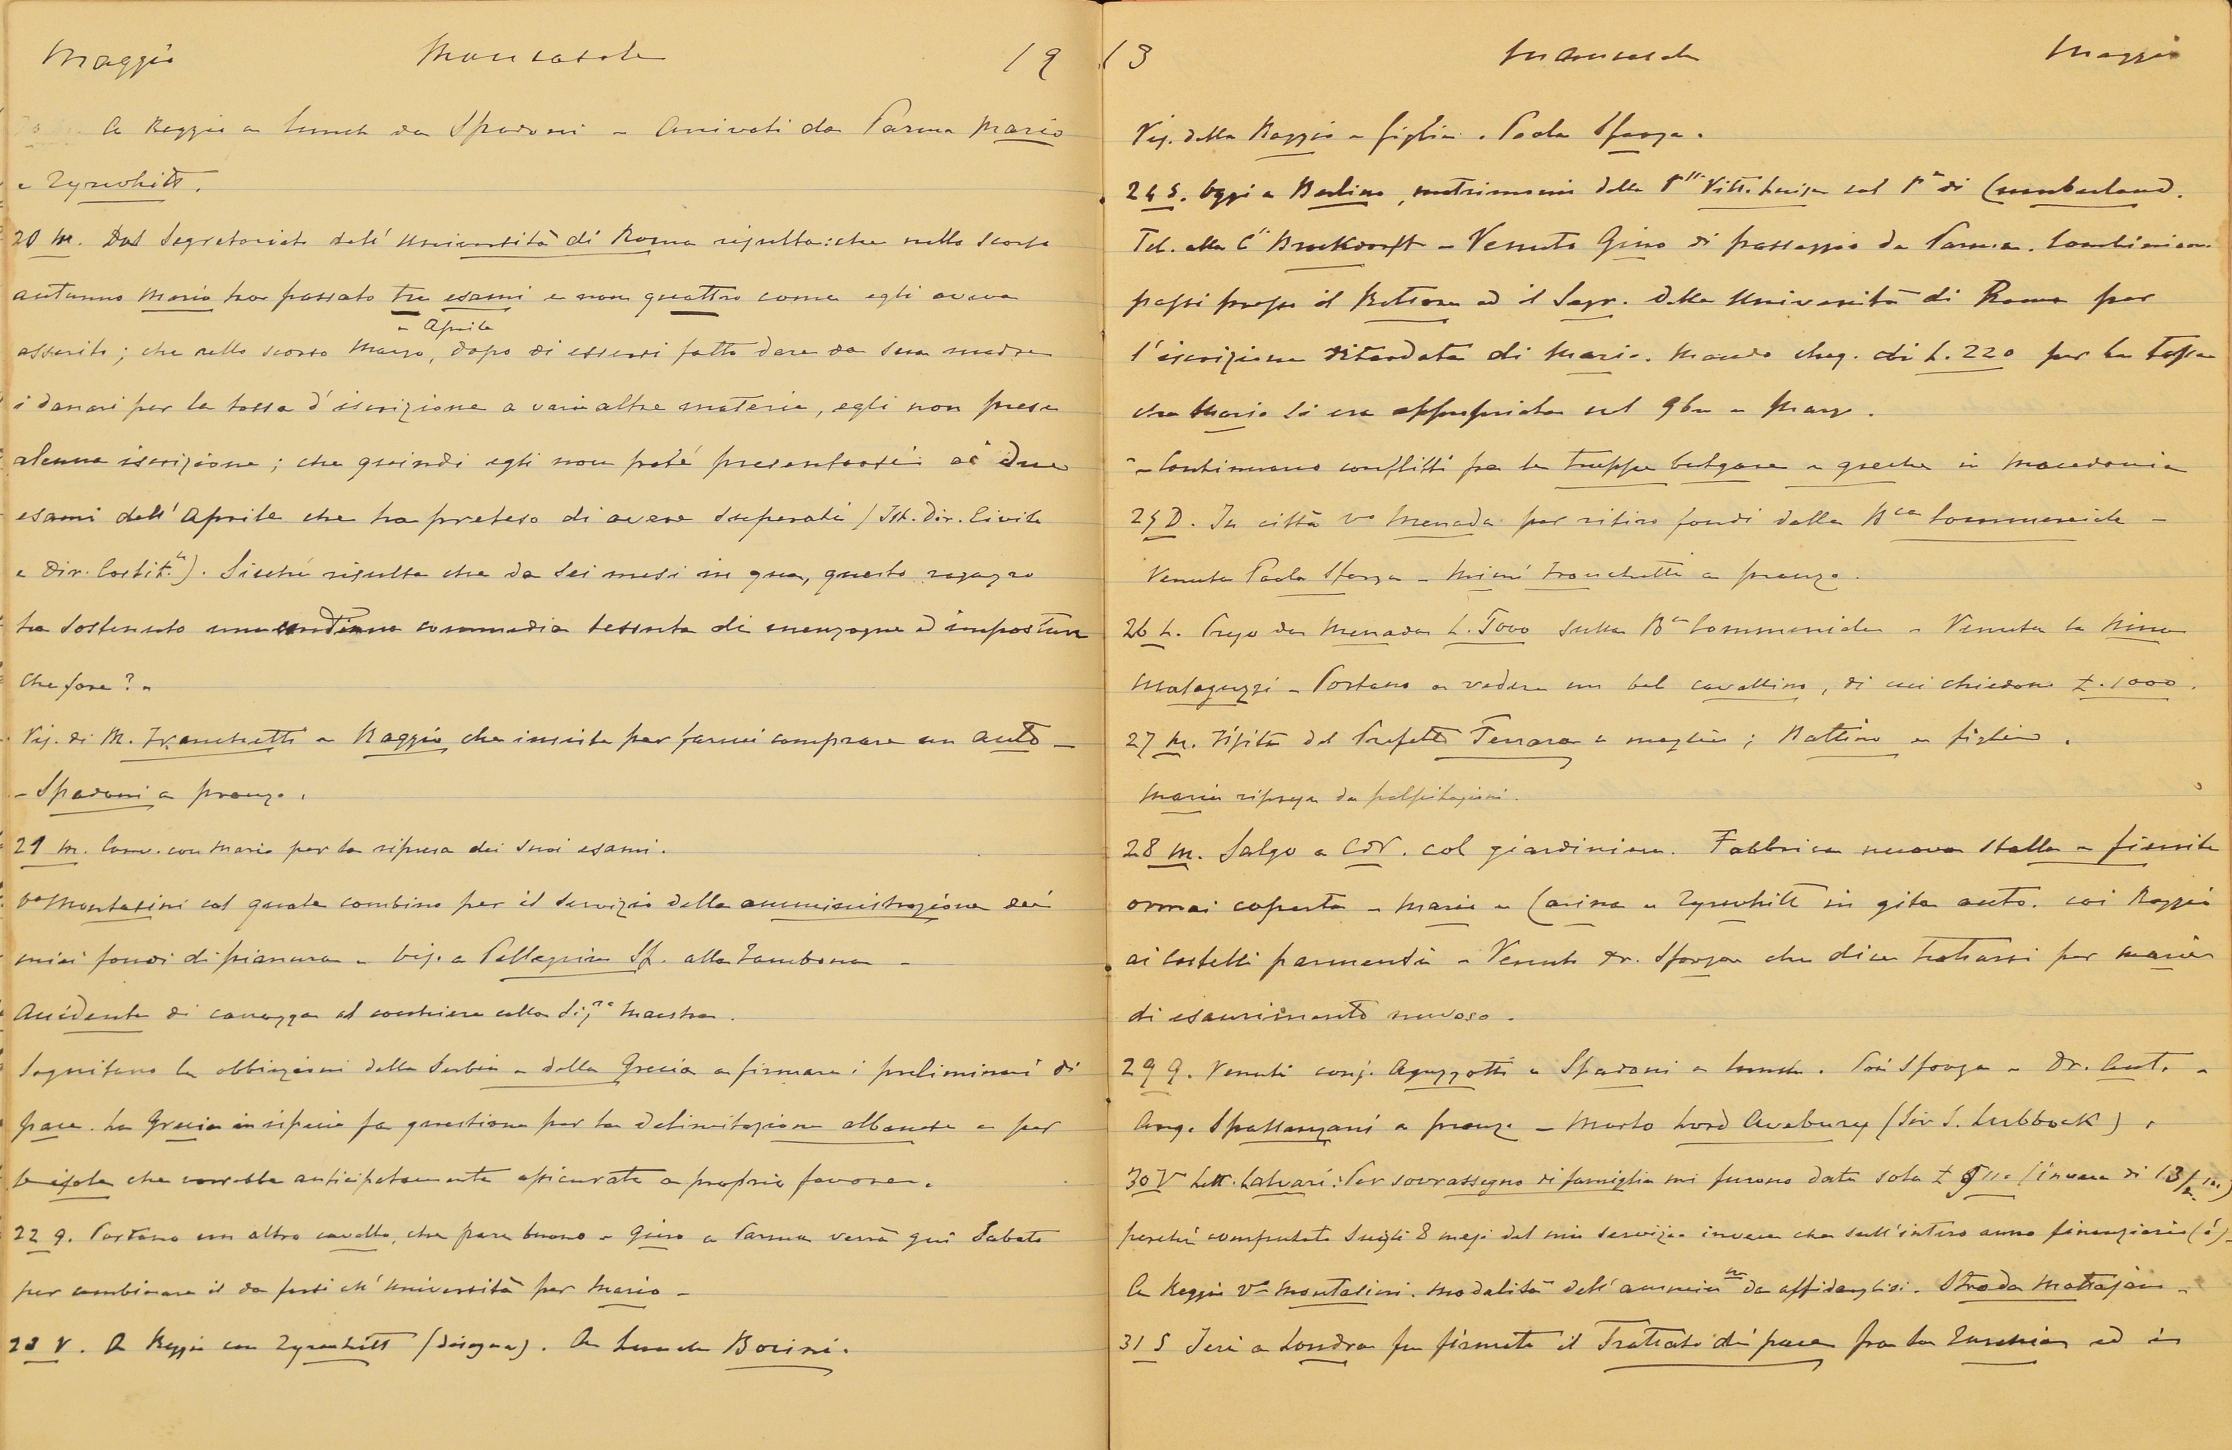 Maggio Moncasale 19
A Reggio a lunch da Spadoni - Arrivati da Parma Mario
e Tyrwhitt.
20 M. Dal Segretariato dell'Università di Roma risulta: che nello scorso
autunno Mario ha passato tre esami e non quattro come egli aveva
e Aprile
asserito; che nello scorso Marzo, dopo di essersi fatto dare da sua madre
i danari per la tassa d'iscrizione a varie altre materie, egli non prese
alcuna iscrizione; che quindi egli non poté presentarsi ai due
esami dell'Aprile che ha preteso di avere superati (Ist. Dir. Civile
e Dir. Costit.le). Sicché risulta che da sei mesi in qua, questo ragazzo
ha sostenuto una continua commedia tessuta di menzogne ed imposture
Che fare? -
Vis. di M. Franchetti a Reggio che insiste per farmi comprare un auto -
- Spadoni a pranzo.
21 M. Conv. con Mario per la ripresa dei suoi esami.
Vo Montasini col quale combino per il servizio della amministrazione dei
miei fondi di pianura - Vis. a Pellegrini Sp. alla
Accidente di carrozza al cocchiere colla Sig.na Maestra.
Seguitano le obbiezioni della Serbia e della Grecia a firmare i preliminari di
pace. La Grecia in ispecie fa questione per la delimitazione albanese e per
le isole che vorrebbe anticipatamente assicurate a proprio favore.
22 G. Portano un altro cavallo, che pare buono - Gino a Parma verrà qui Sabato
per combinare il da farsi all'Università per Mario -
23 V. A Reggio con Tyrwhitt (disegna). A lunch Borini.
13 Moncasale Maggio
Vis. della Reggio e figlia. Paola Sforza.
24 S. Oggi a Berlino, matrimonio della P.ssa Vitt. Luisa col P.e di Cumberland.
Tel. alla C.a Brockdorff - Venuto Gino di passaggio da Parma. Combiniamo
passi presso il Rettore ed il Segr. della Università di Roma per
l'iscrizione ritardata di Mario. Mando cheq. di L. 220 per la tassa
che Mario si era appropriata nel 9bre e Marzo.
- Continuano conflitti fra le truppe bulgare e greche in Macedonia
25 D. In città Vo Menada per ritiro fondi dalla B.ca Commerciale -
Venuta Paola Sforza - Mimì Franchetti a pranzo.
26 L. Prego da Menada L. 5000 sulla B.a Commerciale - Venuta la Nina
Malaguzzi - Portano a vedere un bel cavallino, di cui chiedono L. 1000.
27 M. Visita del Prefetto Ferrara e moglie; Rattino e figlia.
Maria ripresa da palpitazioni.
28 M. Salgo a CdV. col giardiniere. Fabbrica nuova stalla e fienile
ormai coperta - Maria e Carina e Tyrwhitt in gita auto. coi Reggio
ai Castelli parmensi - Venuto Dr. Sforza che dice trattarsi per Maria
di esaurimento nervoso.
29 G. Venuti conj. Aguzzotti e Spadoni a lunch. Poi Sforza - Dr. Ant. e
Ang. Spallanzani a pranzo - Morto Lord Avebury (Sir J. Lubbock).
30 V Lett. Calvari: Per sovrassegno di famiglia mi furono date sole L (invece di
perché computate sugli 8 mesi del mio servizio invece che sull'intero anno finanziario
A Reggio Vo Montasini. Modalità dell'ammin.ne da affidarglisi. Strada Mattajone -
31 S Ieri a Londra fu firmato il Trattato di pace fra la Turchia ed i